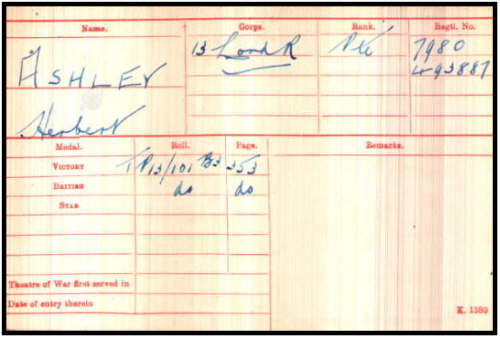 Name. Corps. Rank. Regtl. No.
ASHLEY 13 Lond R Pte 7980
493887
Herbert
Medal. Roll. Page. Remarks.
VICTORY TP13/101 B3 353
BRITISH do do
STAR
Theatre of War first served in
Date of entry therein
K. 1380